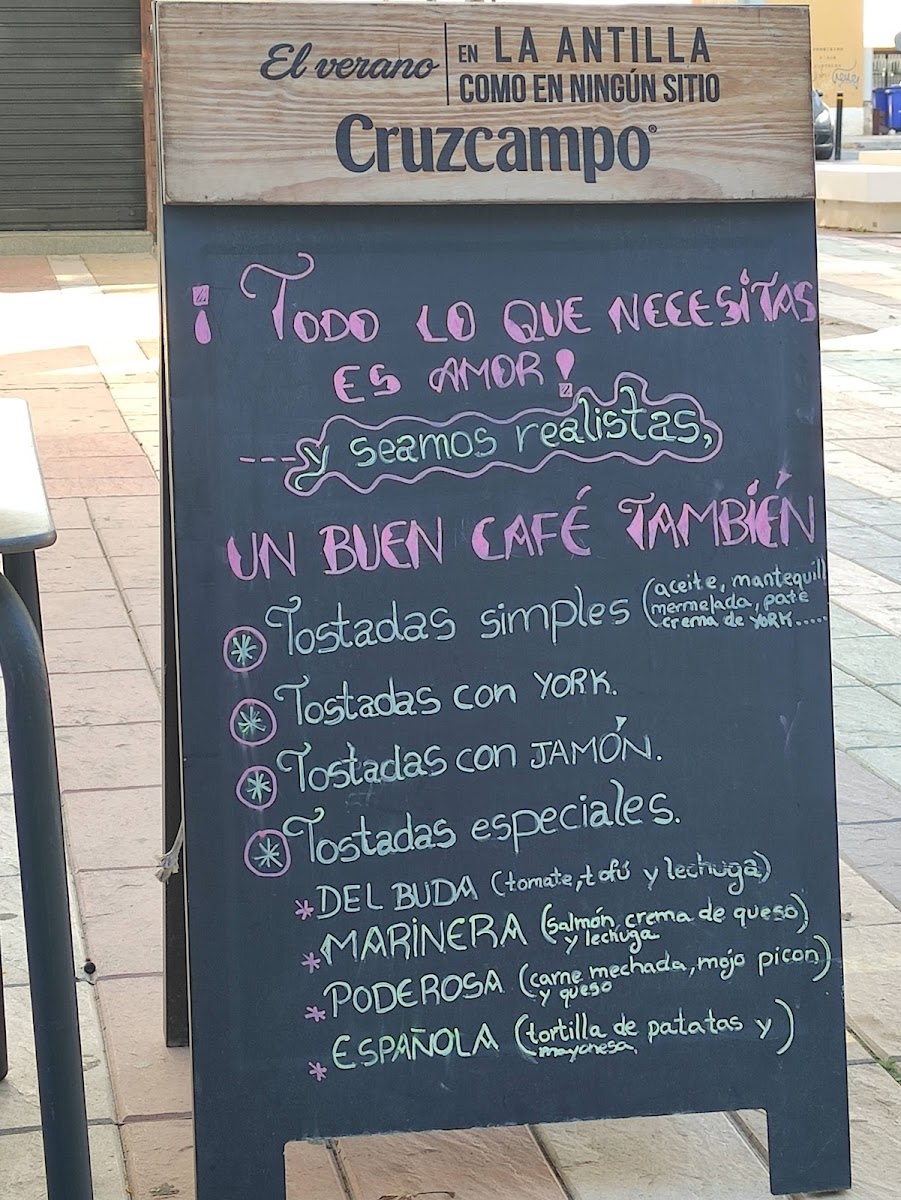 El verano EN LA ANTILLA
COMO EN NINGÚN SITIO
Cruzcampo
¡TODO LO QUE NECESITAS
ES AMOR!
---y seamos realistas,
UN BUEN CAFÉ TAMBIÉN
Tostadas simples (aceite, mantequill
mermelada, paté
crema de YORK.....
Tostadas con YORK.
Tostadas con JAMÓN.
Tostadas especiales.
*DEL BUDA (tomate, tofú y lechuga)
*MARINERA (salmón, crema de queso)
y lechuga
*PODEROSA (carne mechada, mojo picon)
y queso
*ESPAÑOLA (tortilla de patatas y)
mayonesa.